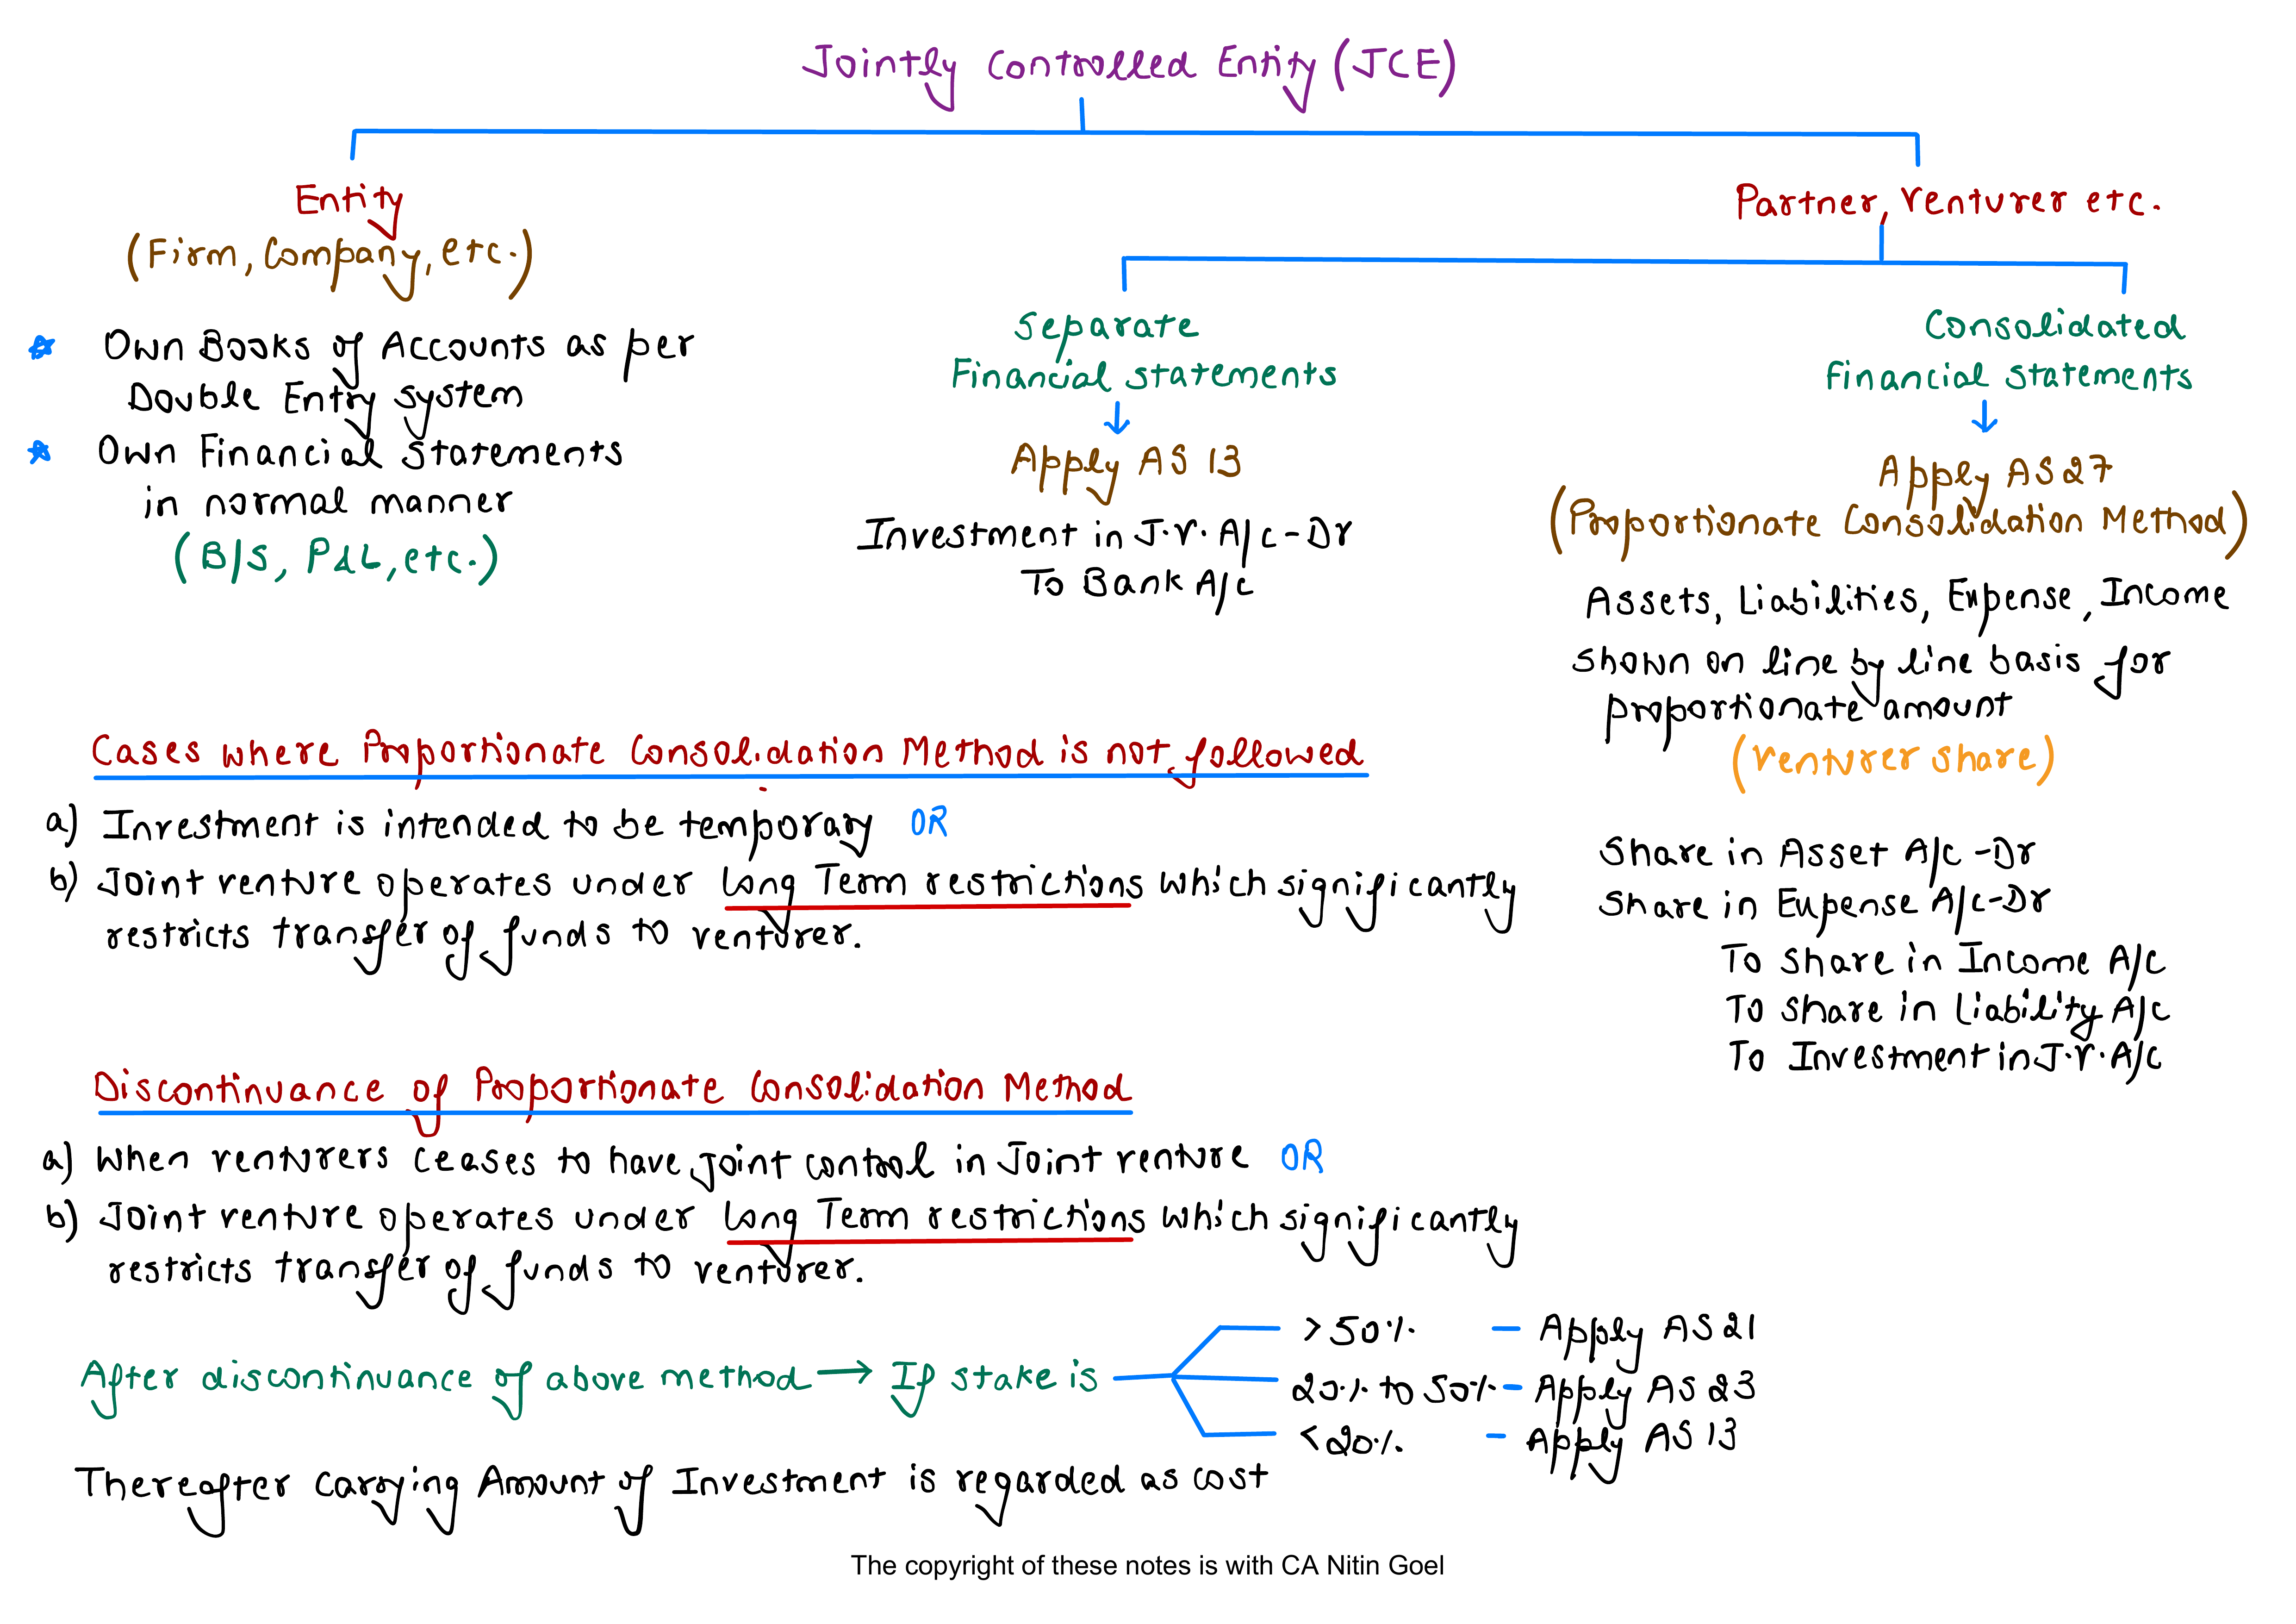 Jointly Controlled Entity (JCE)
Entity
(Firm, Company, etc.)
★ Own Books of Accounts as per
Double Entry system
★ Own Financial Statements
in normal manner
(B/S, P&L, etc.)
Partner, Venturer etc.
Separate
Financial statements
Apply AS 13
Investment in J.V. A/c - Dr
To Bank A/c
Consolidated
financial statements
Apply AS 27
(Proportionate Consolidation Method)
Assets, Liabilities, Expense, Income
shown on line by line basis for
proportionate amount
(Venturer share)
Share in Asset A/c - Dr
Share in Expense A/c - Dr
To share in Income A/c
To share in Liability A/c
To Investment in J.V. A/c
Cases where Proportionate Consolidation Method is not followed
a) Investment is intended to be temporary OR
b) Joint venture operates under Long Term restrictions which significantly
restricts transfer of funds to venturer.
Discontinuance of Proportionate Consolidation Method
a) When venturers ceases to have joint control in Joint venture OR
b) Joint venture operates under Long Term restrictions which significantly
restricts transfer of funds to venturer.
After discontinuance of above method → If stake is
>50% - Apply AS 21
20% to 50% - Apply AS 23
<20% - Apply AS 13
Thereafter Carrying Amount of Investment is regarded as cost
The copyright of these notes is with CA Nitin Goel